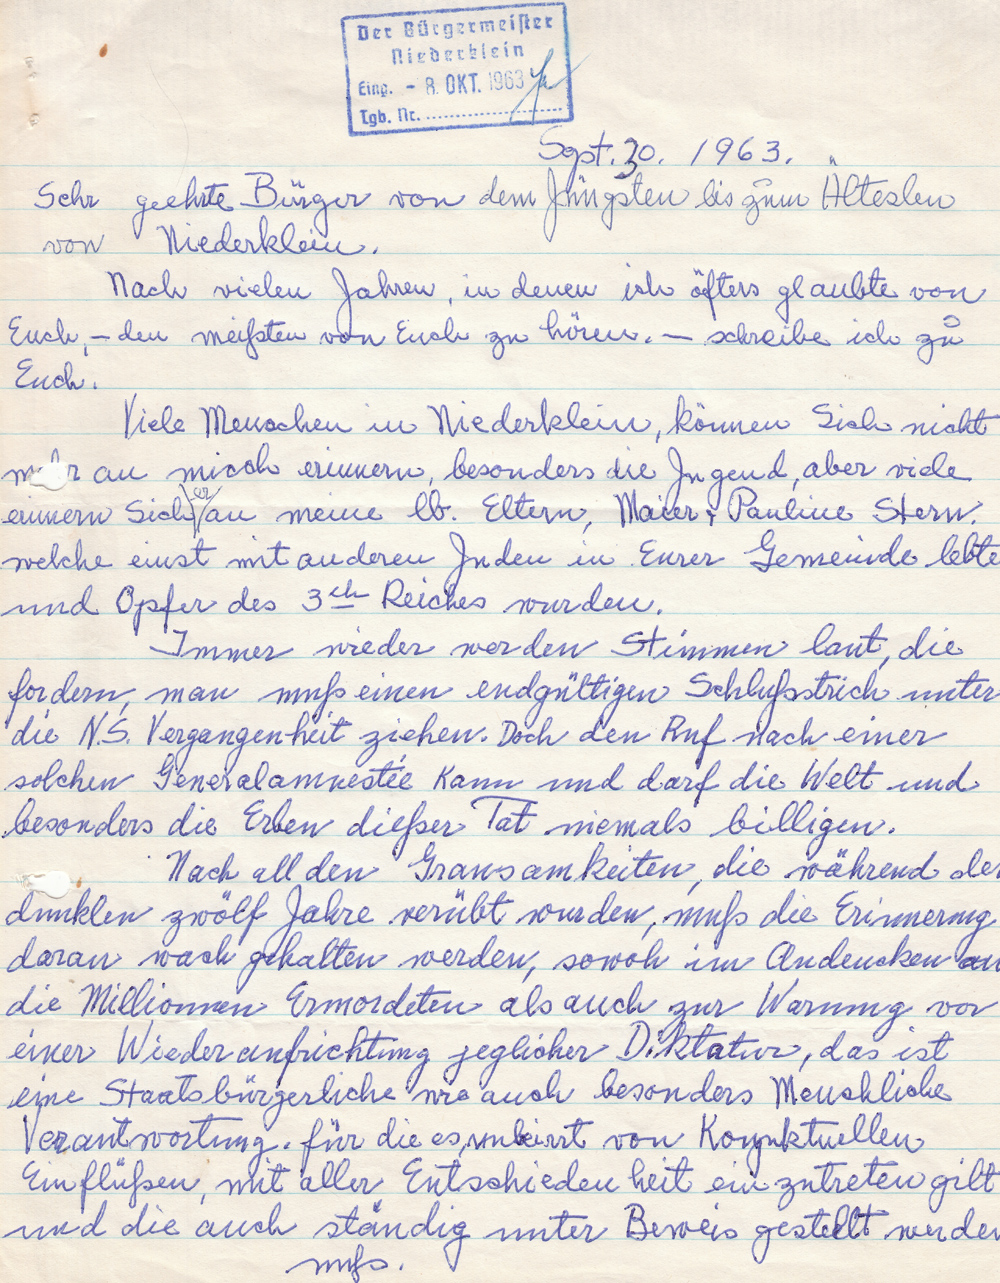 Der Bürgermeister
Niederklein
Eing. - 8. OKT. 1963
Tgb. Nr. ....................
Sept. 30. 1963.
Sehr geehrte Bürger von dem Jüngsten bis zum Ältesten
von Niederklein.
Nach vielen Jahren, in denen ich öfters glaubte von
Euch, – den meißten von Euch zu hören. – schreibe ich zu
Euch.
Viele Menschen in Niederklein, können Sich nicht
mehr an micch erinnern, besonders die Jugend, aber viele
erinnern Sich er an meine lb. Eltern, Maier & Pauline Stern.
welche einst mit anderen Juden in Eurer Gemeinde lebte
und Opfer des 3th Reiches wurden.
Immer wieder werden Stimmen laut, die
fordern, man muß einen endgültigen Schlußstrich unter
die N.S. Vergangenheit ziehen. Doch den Ruf nach einer
solchen Generalamnestie kann und darf die Welt und
besonders die Erben dießer Tat niemals billigen.
Nach all den Grausamkeiten, die während der
dunklen zwölf Jahre verübt wurden, muß die Erinnerung
daran wach gehalten werden, sowoh im Andencken an
die Millionnen Ermordeten als auch zur Warnung vor
einer Wiederaufrichtung jeglicher Diktatur, das ist
eine Staatsbürgerliche wie auch besonders Menschliche
Verantwortung. für die es, unbeirrt von Konjuktuellen
Einflüßen, mit aller Entschiedenheit einzutreten gilt
und die auch ständig unter Beweis gestellt werden
muß.